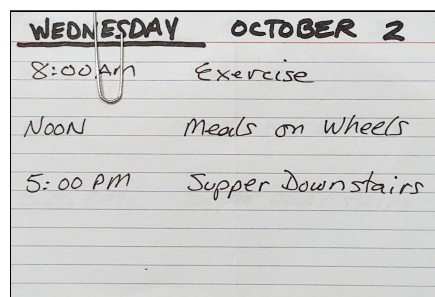 WEDNESDAY OCTOBER 2
8:00 Am Exercise
NOON Meals on Wheels
5:00 PM Supper Downstairs